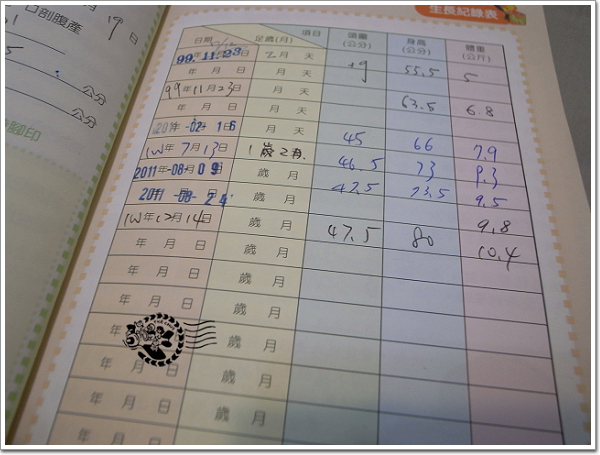 口剖腹產
19日
公分
公分
腳印
生長記錄表
日期 足歲(月) 項目 頭圍(公分) 身高(公分) 體重(公斤)
99.11.23 2月 天 55.5 5
99年11月23日 月 天
年 月 日 月 天 63.5 6.8
2011-02-16 月 天 45 66 7.9
7月13日 1歲2月 46.5 73 9.3
2011-08-09 歲 月 47.5 73.5 9.5
2011-08-24 歲 月 9.8
年12月14日 歲 月 47.5 80 10.4
年 月 日 歲 月
年 月 日 歲 月
年 月 日 歲 月
年 月 日 歲 月
年 月 日 歲 月
年 月 日 歲 月
年 月 日 歲 月
年 月 日